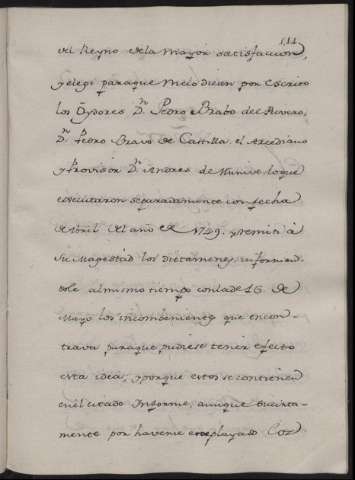 114
del Reyno de la mayor satisfaccion,
y elegi paraque me lo diesen por Escrito
los Oydores Dn. Pedro Brabo del Rivero,
Dn. Pedro Bravo de Castilla, el Arcediano
y Provisor Dn. Andres de Munive, loque
executaron separadamente con fecha
de Abril del año de 1749. y remiti à
su Magestad los dictamenes, informan
dole almismo tiempo con la de 16 de
Mayo los incombenientes que encon-
trava paraque pudiese tener efecto
esta idea; y porque estos se contienen
en el citado Informe, aunque sucinta-
mente por haverse explayado Con